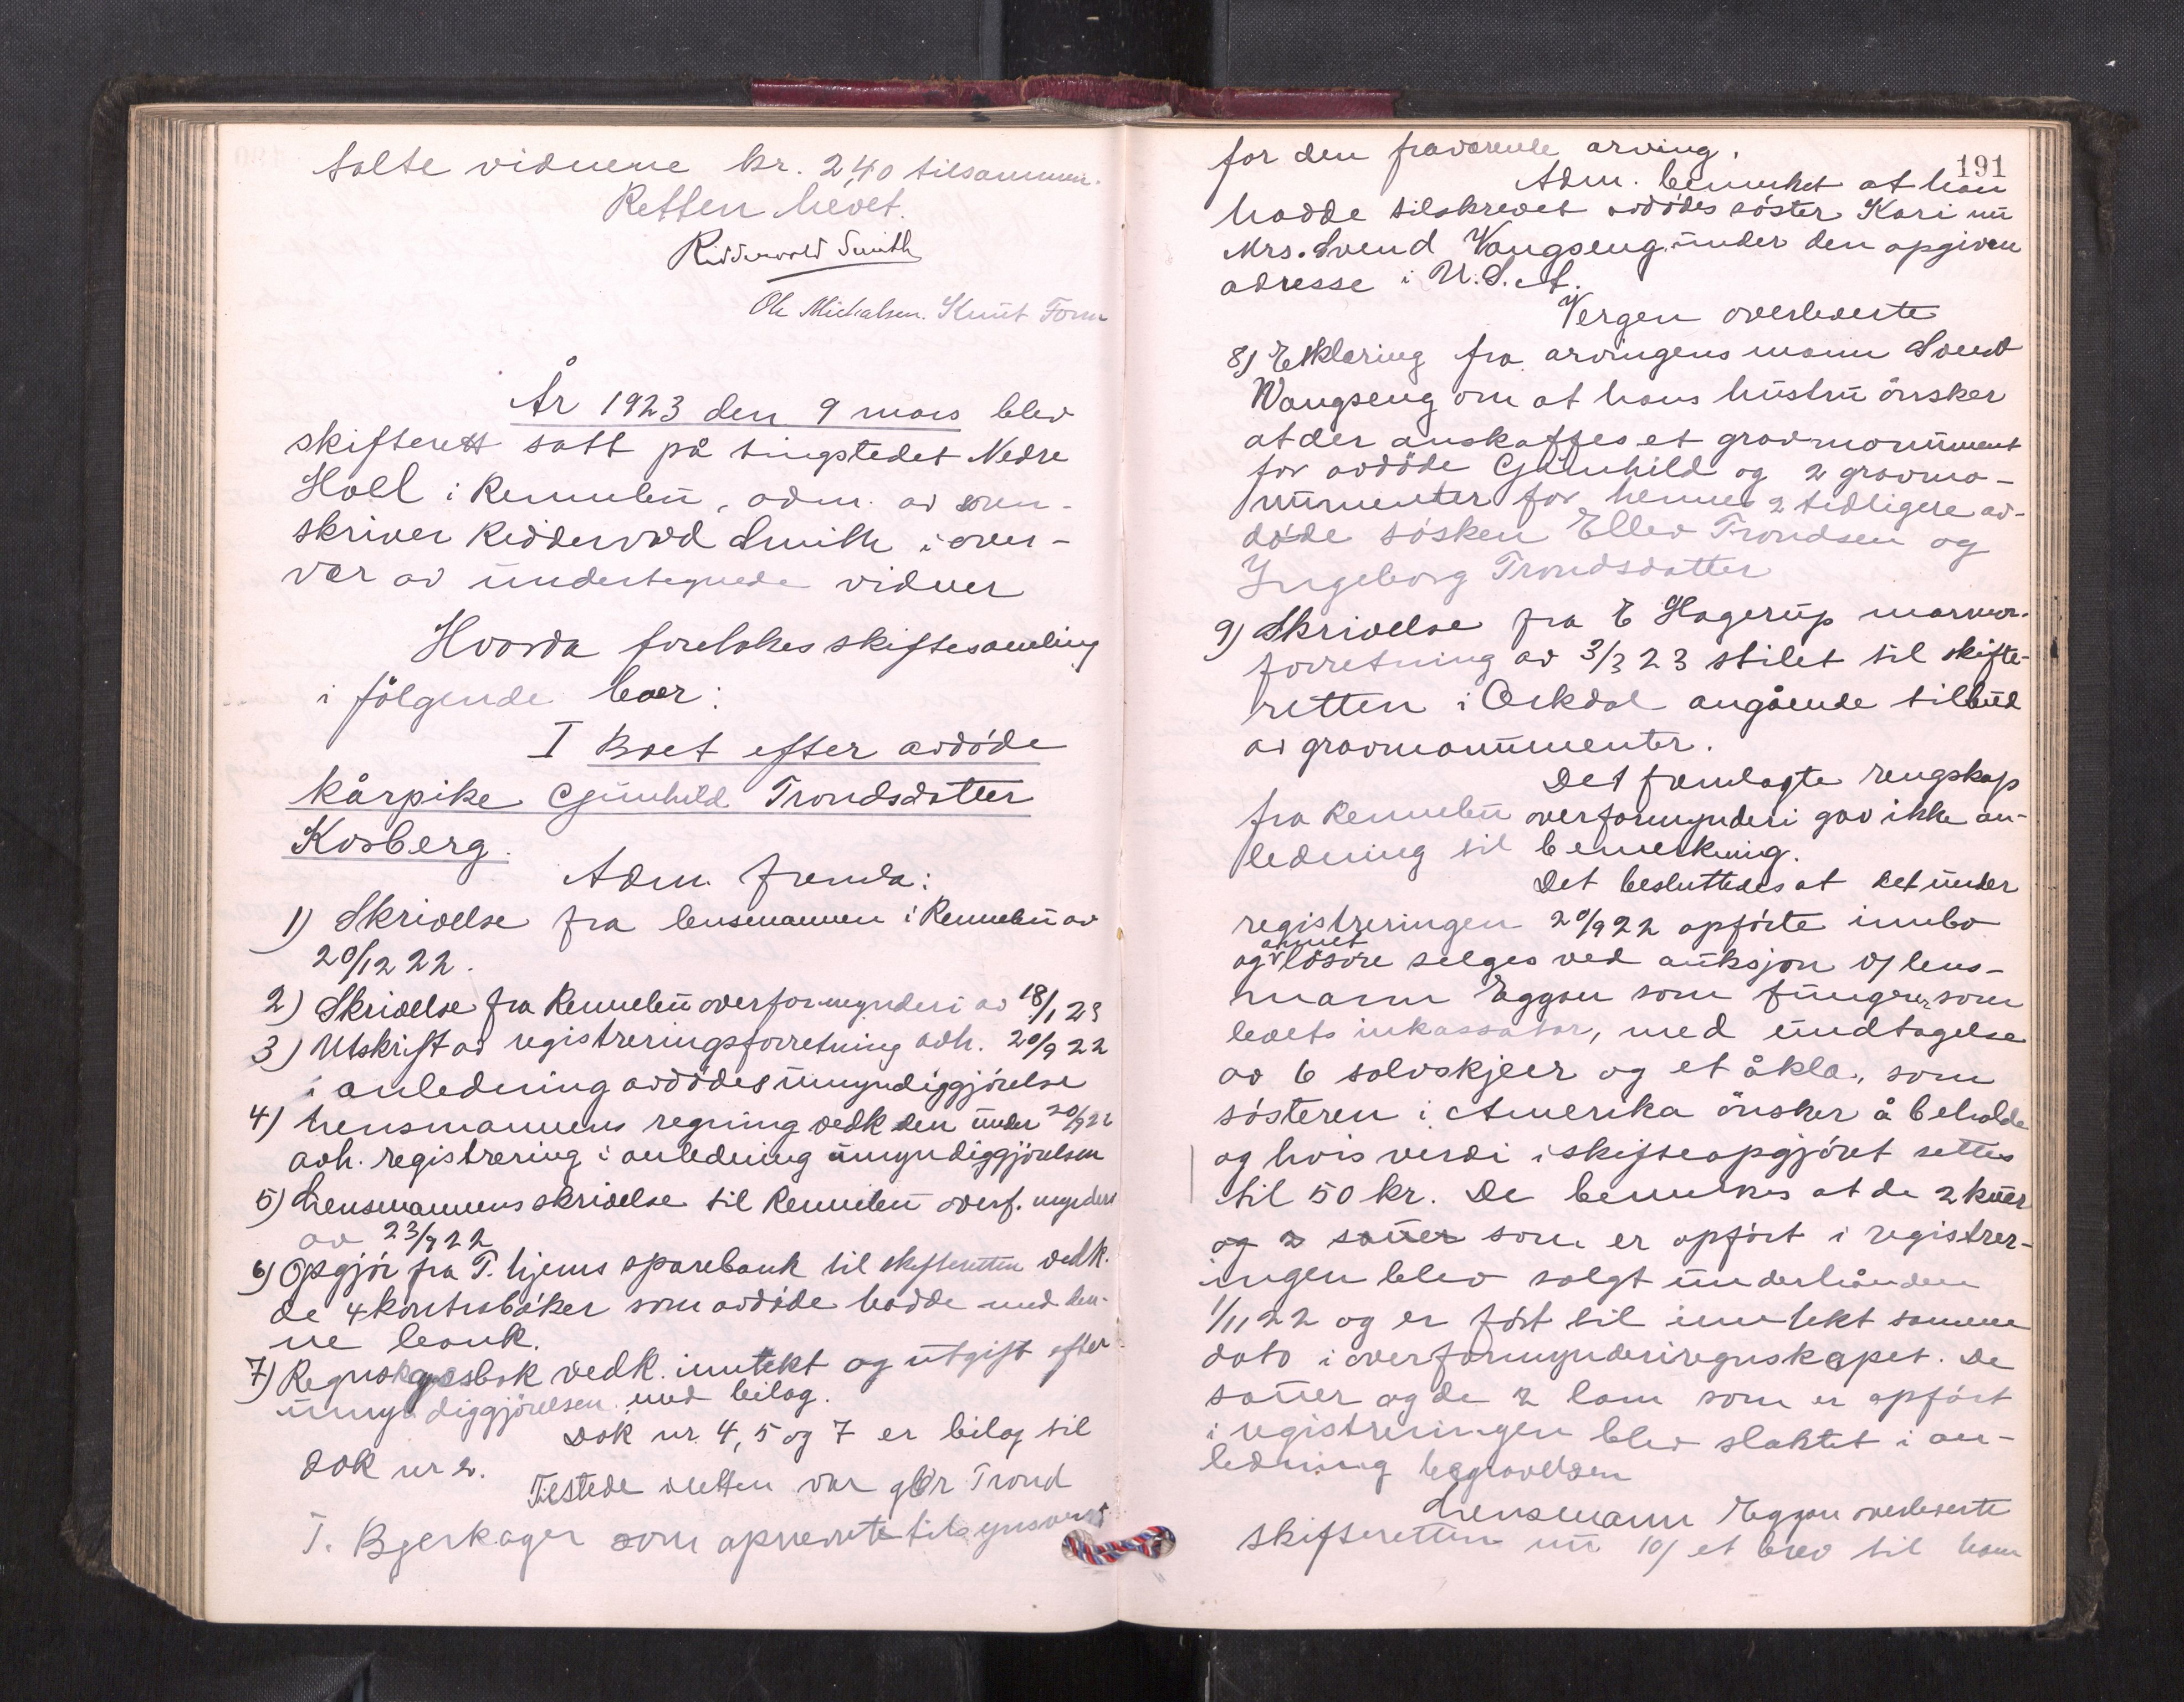 talte vidnene kr. 2,40 tilsammen.
Retten hevet.
Ridderwold Smith
Ole Michalsen. Knut
År 1923 den 9 mars blev
skifterett satt på tingstedet Nedre
Holl i Rennebu, adm. av soren-
skriver Ridderwold Smith i over-
vær av undertegnede vidner
Hvorda foretokes skiftesamling
i følgende boer:
I Boet efter avdøde
kårpike Gunhild Trondsdatter
Kosberg.
Adm. fremla:
1) Skrivelse fra lensmannen i Rennebu av
20/12 22.
2) Skrivelse fra Rennebu overformynderi av 18/1 23
3) Utskrift av registreringsforretning avh. 20/9 22
i anledning avdødes umyndiggjørelse
4) Lensmannens regning vedk den under 20/9 22
avh. registrering i anledning umyndiggjørelsen
5) Lensmannens skrivelse til Rennebu overf. mynderi
av 23/9 22
6) Opgjør fra T. hjems sparebank til skifteretten vedk.
de 4 kontrabøker som avdøde hadde med den-
ne bank.
7) Regnskapsbok vedk. inntekt og utgift efter
umyndiggjørelsen med bilag.
Dok nr. 4, 5 og 7 er bilag til
dok nr 2.
Tilstede i retten var gbr Trond
T. Bjerkager som opnevnte tilsynsverge
191
for den fraværende arving.
Adm. bemerket at han
hadde tilskrevet avdødes søster Kari nu
Mrs. Svend Vangseng under den opgivne
adresse i U.S.A.
Vergen overleverte
8) Erklæring fra arvingens mann Svend
Wangseng om at hans hustru ønsker
at der anskaffes et gravmonument
for avdøde Gunhild og 2 gravmo-
numenter for hennes 2 tidligere av-
døde søsken Ellev Trondsen og
Ingeborg Trondsdatter
9) Skrivelse fra E Hagerup marmor-
forretning av 3/3 23 stilet til skifte-
retten i Orkdal angående tilbud
av gravmonumenter.
Det fremlagte rengskap
fra Rennebu overformynderi gav ikke an-
ledning til bemerkning.
Det besluttedes at det under
registreringen 20/9 22 opførte innbo
og annet løsøre selges ved auksjon v/ lens-
mann Eggan som fungerer som
boets inkassator, med undtagelse
av 6 sølvskjeer og et åkla, som
søsteren i Amerika ønsker å beholde
og hvis verdi i skifteopgjøret settes
til 50 kr. De bemerkes at de 2 kuer
og 2 sauer som er opført i registrer-
ingen blev solgt underhånden
1/11 22 og er ført til inntekt samme
dato i overformynderiregnskapet. De
sauer og de 2 lam som er opført
i registreringen blev slaktet i an-
ledning begravelsen
Lensmann Eggan overleverte
skifteretten nu 10) et brev til ham